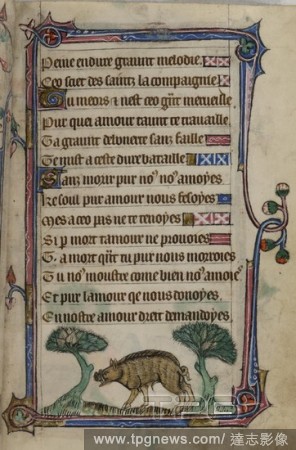 Peine endure graunt melodie
Ceo fuet des saintz la compaignie
Tu meors & nest ceo qe merueille
Pur quei amour taunt te trauaille
Ta graunt debonerte sanz faille
Te mist a ceste dure bataille
Sanz morir pur nos nos amoyes
Ke soul pur amour nous fesoyes
Mes a ceo pas ne te tenoyes
Si p mort tamour ne prouoies
A mort qe tu pur nous morroies
Tu nos moustre come bien nos amoies
Et pur lamour qe nous donoyes
En nostre amour dreit demandoyes
www.tpgnews.com/ 達志影像